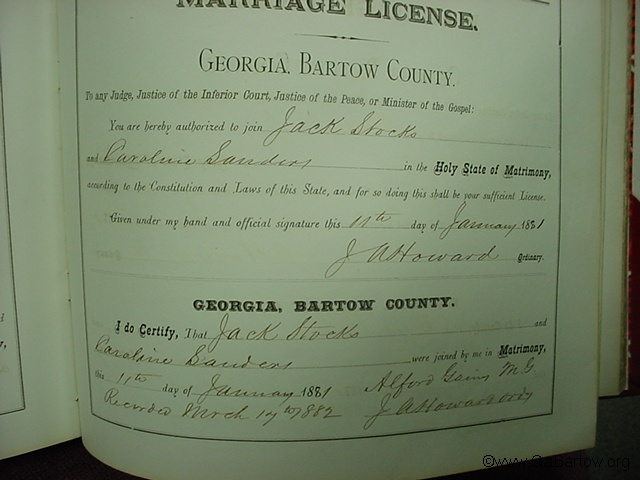 MARRIAGE LICENSE.
GEORGIA, BARTOW COUNTY.
To any Judge, Justice of the Inferior Court, Justice of the Peace, or Minister of the Gospel:
You are hereby authorized to join Jack Stocks
and Caroline Sanders in the Holy State of Matrimony,
according to the Constitution and Laws of this State, and for so doing this shall be your sufficient License.
Given under my hand and official signature this 11th day of January 1881
J A Howard Ordinary.
GEORGIA, BARTOW COUNTY.
I do Certify, That Jack Stocks and
Caroline Sanders were joined by me in Matrimony,
this 11th day of January 1881 Alford Gains M.G.
Recorded Mrch 17th 1882 J A Howard Ordy